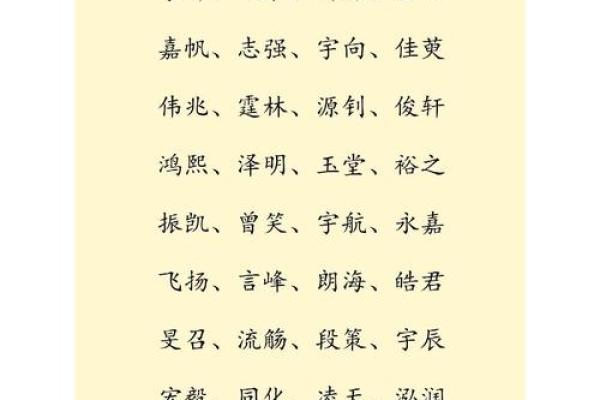 嘉帆、志强、宇向、佳萸
伟兆、霆林、源钊、俊轩
鸿熙、泽明、玉堂、裕之
振凯、曾笑、宇航、永嘉
飞扬、言峰、朗海、皓君
旻召、流觞、段策、宇辰
宏毅、同化、凌天、泓润